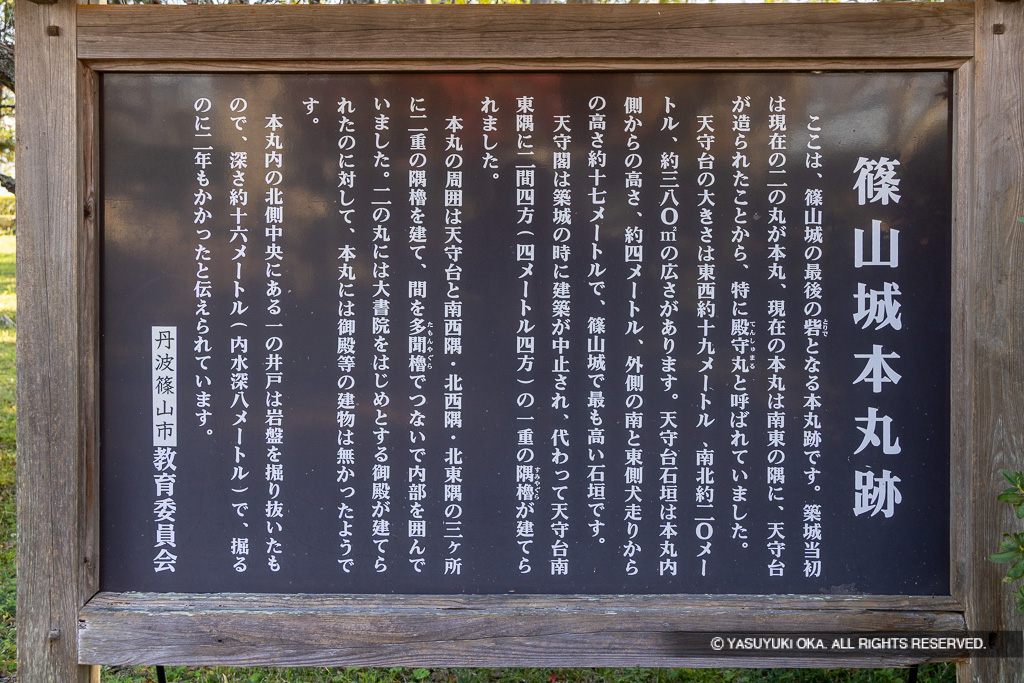 篠山城本丸跡
ここは、篠山城の最後の砦となる本丸跡です。築城当初
とりで
は現在の二の丸が本丸、現在の本丸は南東の隅に、天守台
が造られたことから、特に殿守丸と呼ばれていました。
てんしゅまる
天守台の大きさは東西約十九メートル、南北約二〇メー
トル、約三八〇㎡の広さがあります。天守台石垣は本丸内
側からの高さ、約四メートル、外側の南と東側犬走りから
の高さ約十七メートルで、篠山城で最も高い石垣です。
天守閣は築城の時に建築が中止され、代わって天守台南
東隅に二間四方(四メートル四方)の一重の隅櫓が建てら
すみやぐら
れました。
本丸の周囲は天守台と南西隅・北西隅・北東隅の三ヶ所
に二重の隅櫓を建て、間を多聞櫓でつないで内部を囲んで
たもんやぐら
いました。二の丸には大書院をはじめとする御殿が建てら
れたのに対して、本丸には御殿等の建物は無かったようで
す。
本丸内の北側中央にある一の井戸は岩盤を掘り抜いたも
ので、深さ約十六メートル(内水深八メートル)で、掘る
のに二年もかかったと伝えられています。
丹波篠山市教育委員会
© YASUYUKI OKA. ALL RIGHTS RESERVED.